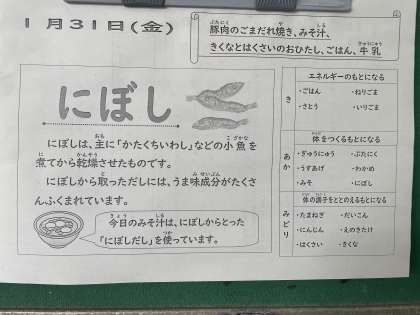 1月31日(金)
豚肉のごまだれ焼き、みそ汁、
きくなとはくさいのおひたし、ごはん、牛乳
にぼし
にぼしは、主に「かたくちいわし」などの小魚を
煮てから乾燥させたものです。
にぼしから取っただしには、うま味成分がたくさ
んふくまれています。
今日のみそ汁は、にぼしからとった
「にぼしだし」を使っています。
き
エネルギーのもとになる
・ごはん ・ねりごま
・さとう ・いりごま
あか
体をつくるもとになる
・ぎゅうにゅう ・ぶたにく
・うすあげ ・わかめ
・みそ ・にぼし
みどり
体の調子をととのえるもとになる
・たまねぎ ・だいこん
・にんじん ・えのきたけ
・はくさい ・きくな